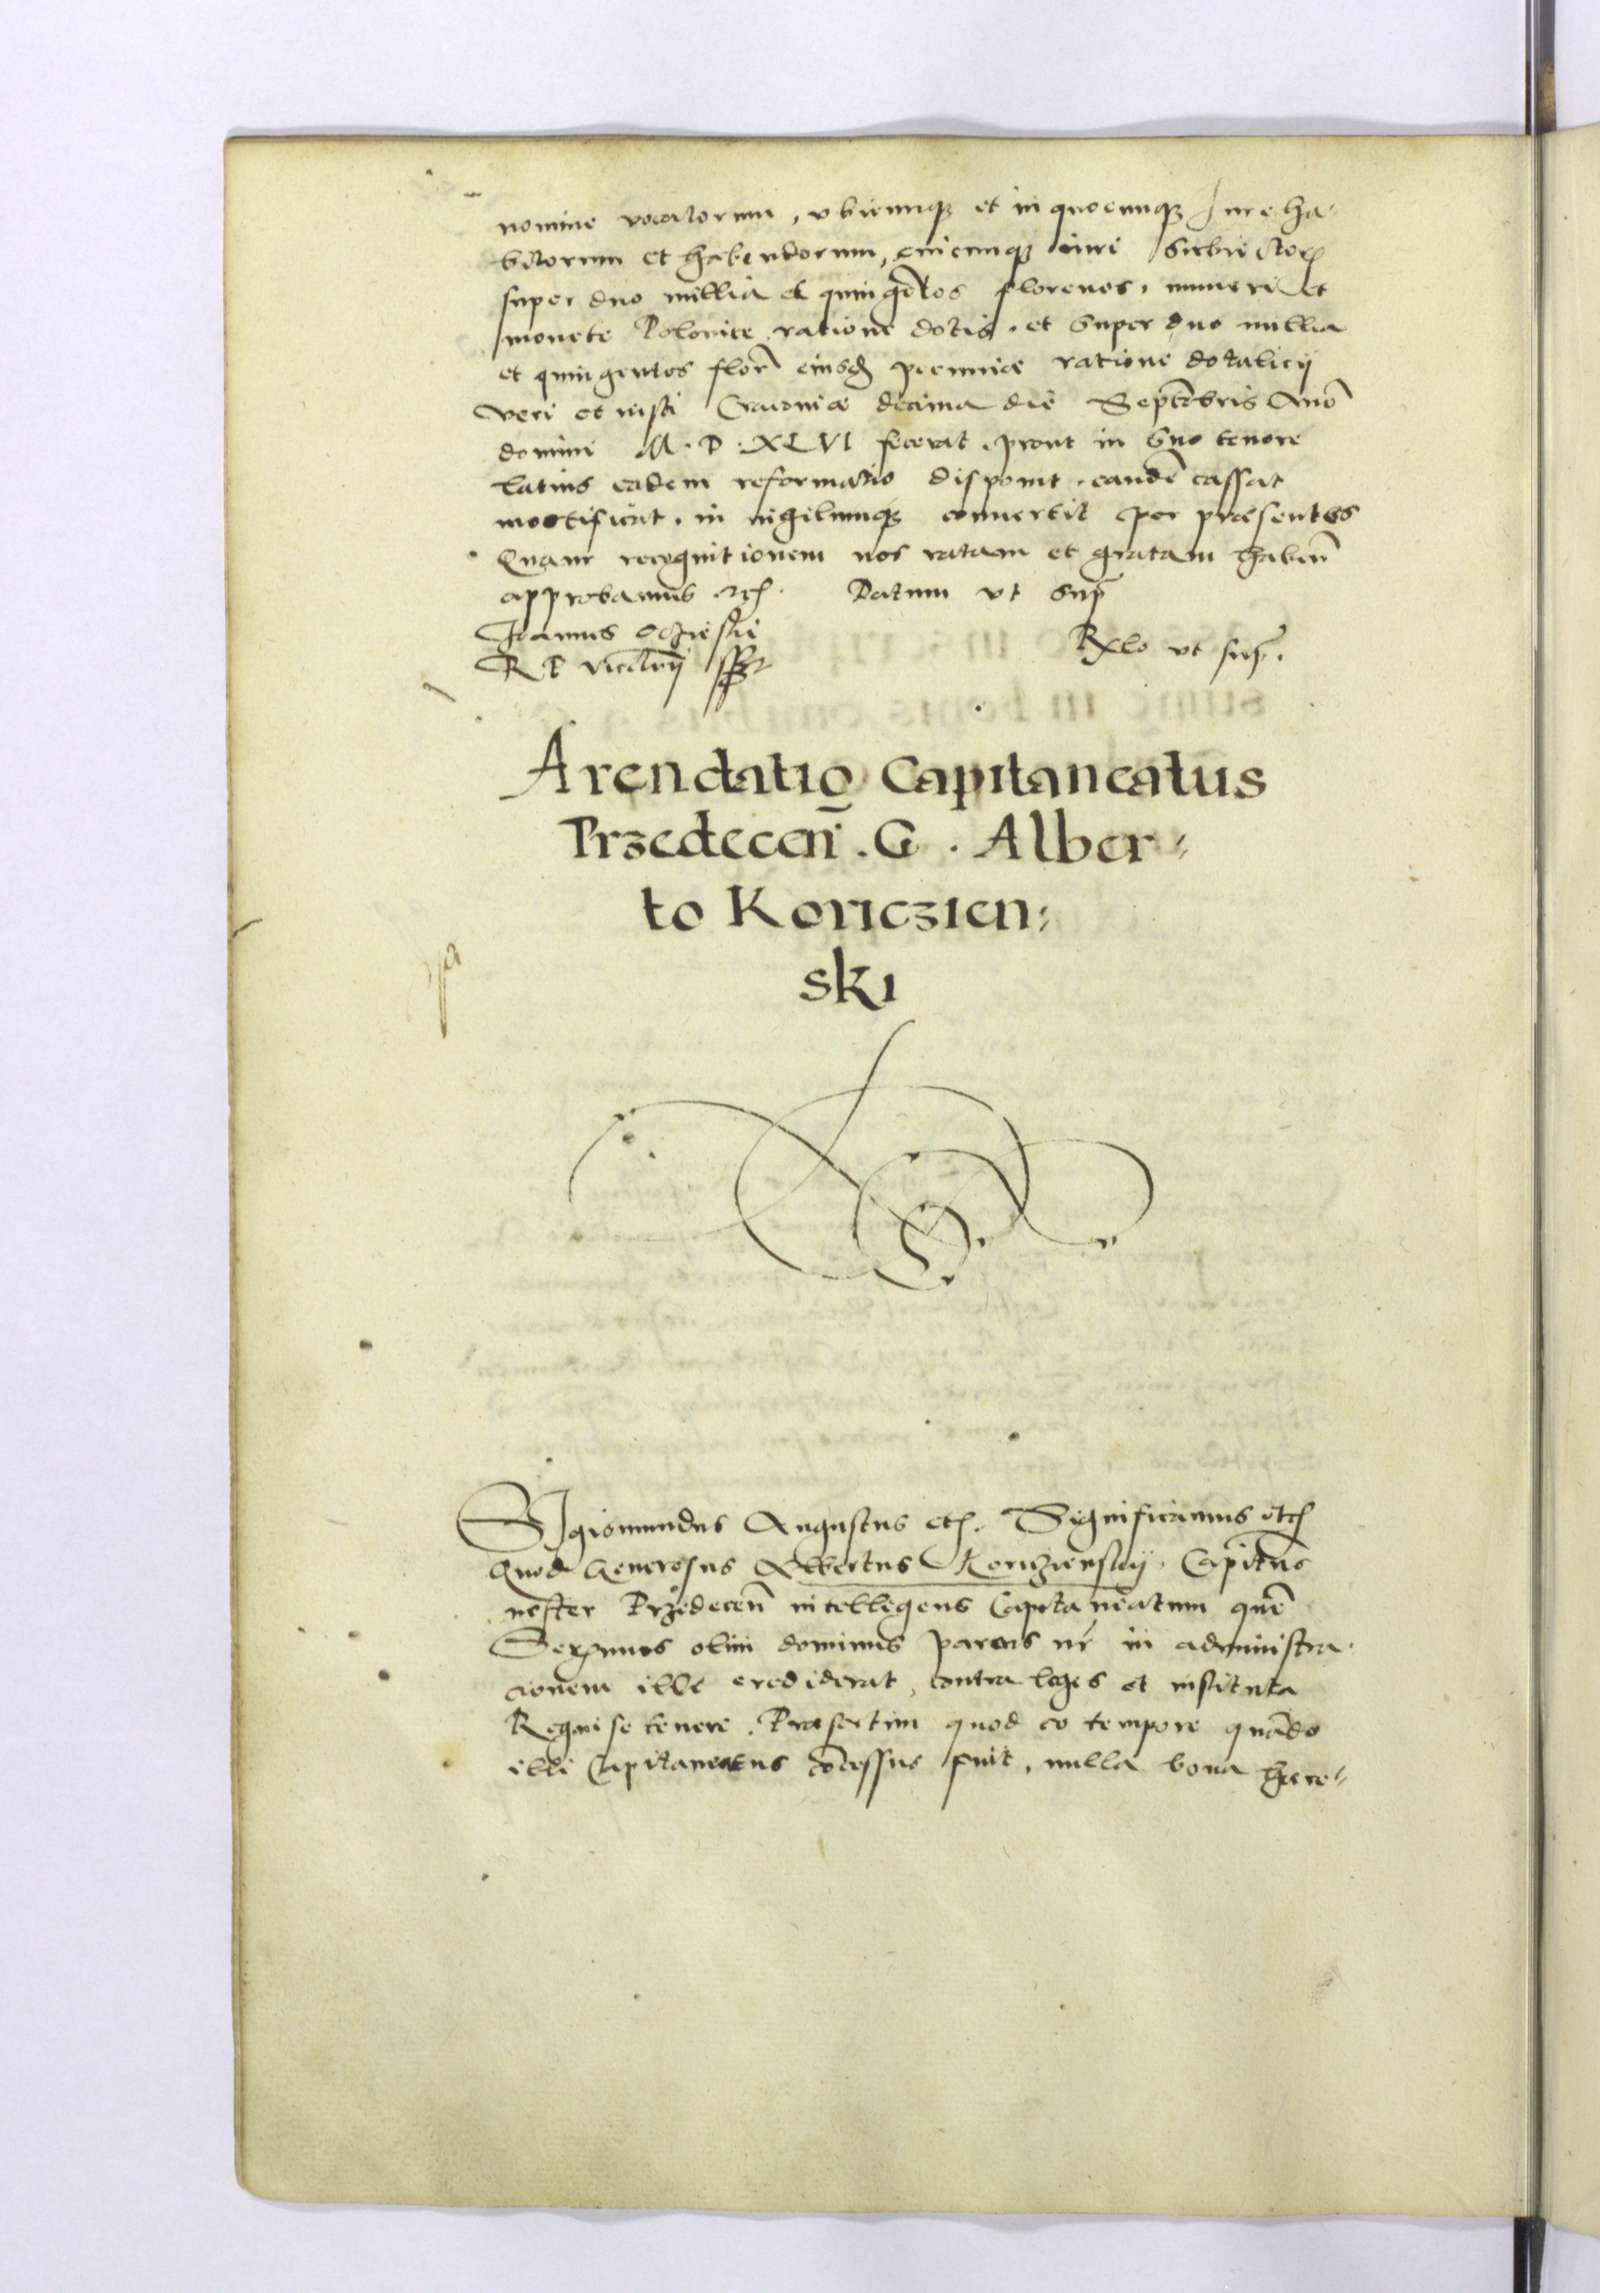 nomine vocatorum, vbicunq3 et in quocunq3 Iure ha-
bitorum et habendorum, cuicunq3 iure subiector[um]
super duo millia et quingẽtos florenos, numeri et
monete Polonice ratione dotis. et super duo millia
et quingentos florẽ eiusd[em] pecuniæ ratione dotalicij
veri et iusti Cracouiæ decima die Septẽbris Anõ
domini M.D.XLVI fecerat, prout in suo tenore
latius eadem reformatio disponit, eandẽ cassat
mortificat, in nihilumq3 conuertit per præsentes
Quam recognitionem nos ratam et gratam habeñ
approbamus etc. Datum vt sup̃
Joannes Oczieski
R P vicecãrij sspt Rxlo vt sup̃.
Arendatio Capitaneatus
Przedeceñ. G. Alber-
to Koriczien-
ski
Sigismundus Augustus etc. Significamus etc
Quod Generosus Albertus Koriczienskij, Capitñs
noster Przedeceñ intelligens Capitaneatum quẽ
Serẽmus olim dominus parens nr̃ in administra-
cionem illi crediderat, contra leges et instituta
Regni se tenere. Præsertim quod eo tempore quãdo
illi Capitaneatus cõcessus fuit, nulla bona hære-